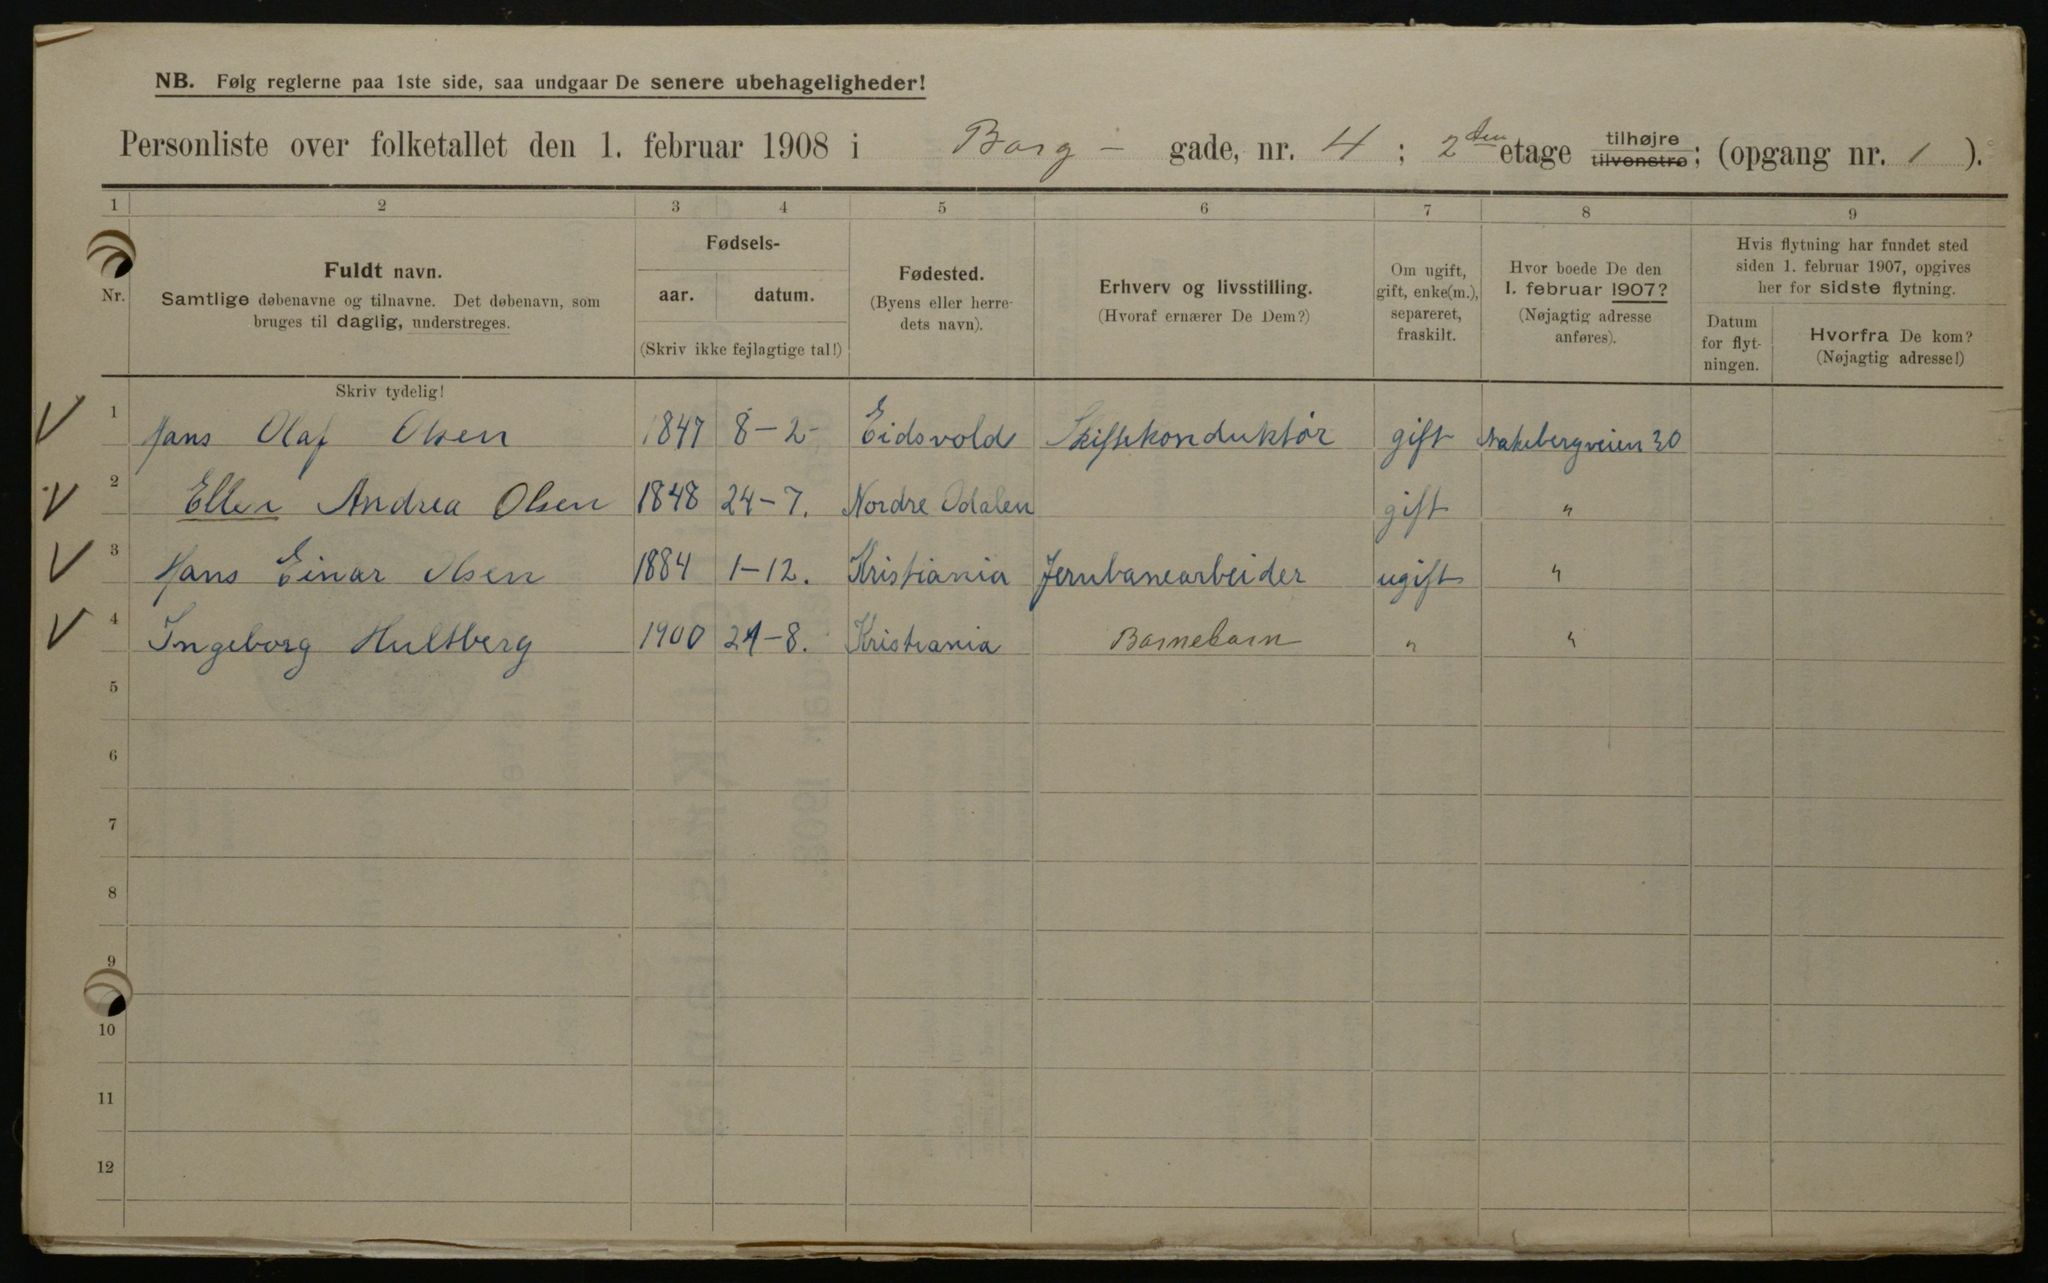 NB. Følg reglerne paa 1ste side, saa undgaar De senere ubehageligheder!
Personliste over folketallet den 1. februar 1908 i Borg- gade, nr. 4 ; 2den etage tilhøjre tilvenstre; (opgang nr. 1 ).
1 2 3 4 5 6 7 8 9
Nr.
Fuldt navn.
Samtlige døbenavne og tilnavne. Det døbenavn, som
bruges til daglig, understreges.
Fødsels-
aar. datum.
(Skriv ikke fejlagtige tal!)
Fødested.
(Byens eller herre-
dets navn).
Erhverv og livsstilling.
(Hvoraf ernærer De Dem?)
Om ugift,
gift, enke(m.),
separeret,
fraskilt.
Hvor boede De den
1. februar 1907?
(Nøjagtig adresse
anføres).
Hvis flytning har fundet sted
siden 1. februar 1907, opgives
her for sidste flytning.
Datum
for flyt-
ningen.
Hvorfra De kom?
(Nøjagtig adresse!)
Skriv tydelig!
1 Hans Olaf Olsen 1847 8-2- Eidsvold Skiftekonduktør gift 30
2 Ellen Andrea Olsen 1848 24-7. Nordre Odalen gift "
3 Hans Einar Olsen 1884 1-12. Kristiania Jernbanearbeider ugift "
4 Ingeborg Hultberg 1900 -8. Kristiania Barnebarn " "
5
6
7
8
9
10
11
12